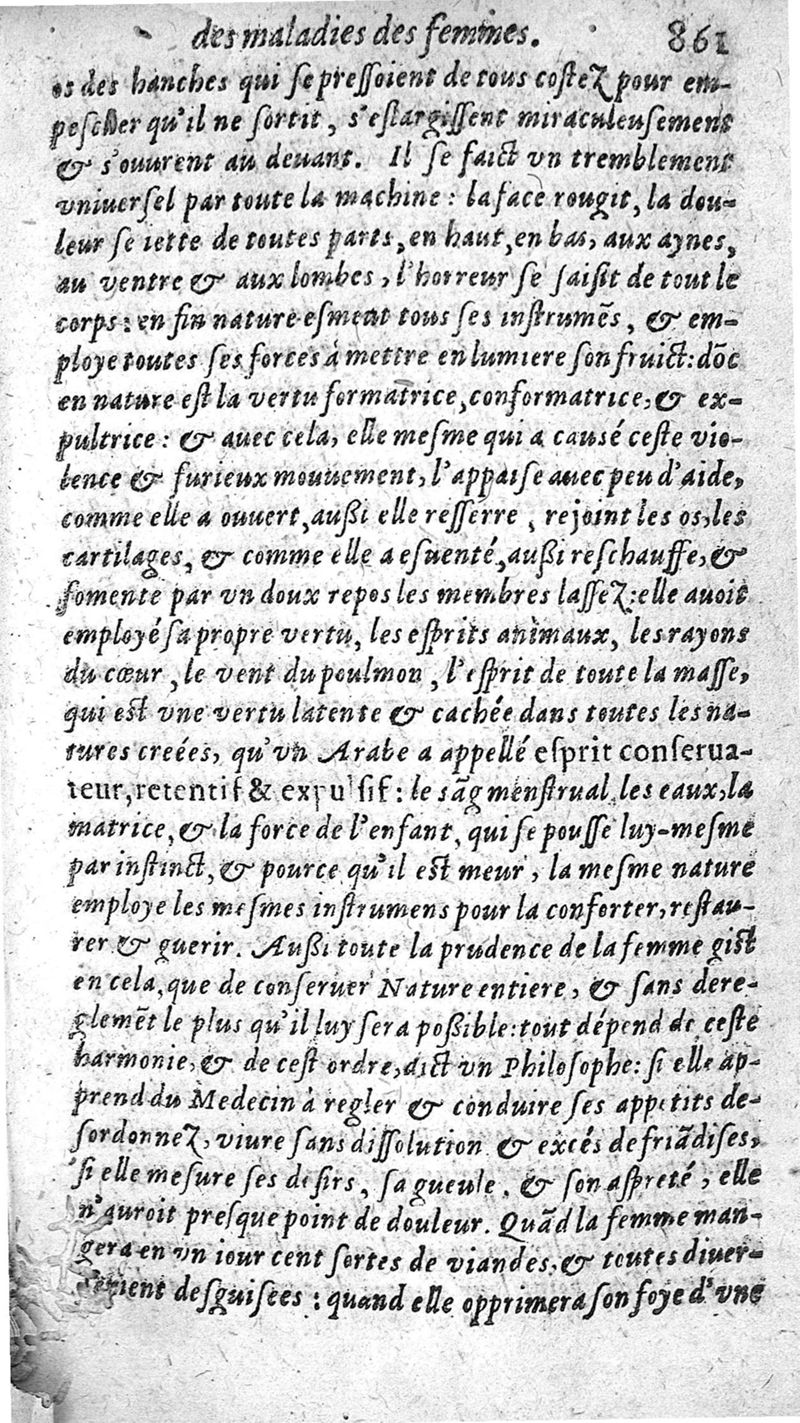 des maladies des femmes. 861
os des hanches qui se pressoient de tous costeZ pour em-
pescher qu'il ne sortit, s'eslargissent miraculeusement
& s'ouurent au deuant. Il se faict vn tremblement
vniuersel par toute la machine : la face rougit, la dou-
leur se iette de toutes parts, en haut, en bas, aux aynes,
au ventre & aux lombes, l'horreur se saisit de tout le
corps : en fin nature esmeut tous ses instrumēs, & em-
ploye toutes ses forces à mettre en lumiere son fruict: dōc
en nature est la vertu formatrice, conformatrice, & ex-
pultrice : & auec cela, elle mesme qui a causé ceste vio-
lence & furieux mouuement, l'appaise auec peu d'aide,
comme elle a ouuert, außi elle resserre, rejoint les os, les
cartilages, & comme elle a esuenté, außi reschauffe, &
fomente par vn doux repos les membres lasseZ: elle auoit
employé sa propre vertu, les esprits animaux, les rayons
du cœur, le vent du poulmon, l'esprit de toute la masse,
qui est vne vertu latente & cachée dans toutes les na-
tures creées, qu'vn Arabe a appellé esprit conserua-
teur, retentif & expulsif : le sāg menstrual, les eaux, la
matrice, & la force de l'enfant, qui se pousse luy-mesme
par instinct, & pource qu'il est meur, la mesme nature
employe les mesmes instrumens pour la conforter, restau-
rer & guerir. Außi toute la prudence de la femme gist
en cela, que de conseruer Nature entiere, & sans dere-
glemēt le plus qu'il luy sera poßible: tout dépend de ceste
harmonie, & de cest ordre, dict vn Philosophe: si elle ap-
prend du Medecin à regler & conduire ses appetits de-
sordonneZ, viure sans dissolution & excés de friādises,
si elle mesure ses desirs, sa gueule, & son aspreté, elle
n'auroit presque point de douleur. Quād la femme man-
gera en vn iour cent sortes de viandes, & toutes diuer-
desguisées : quand elle opprimera son foye d'vne